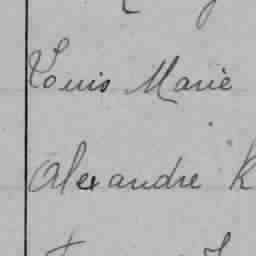 Louis Marie
Alexandre K